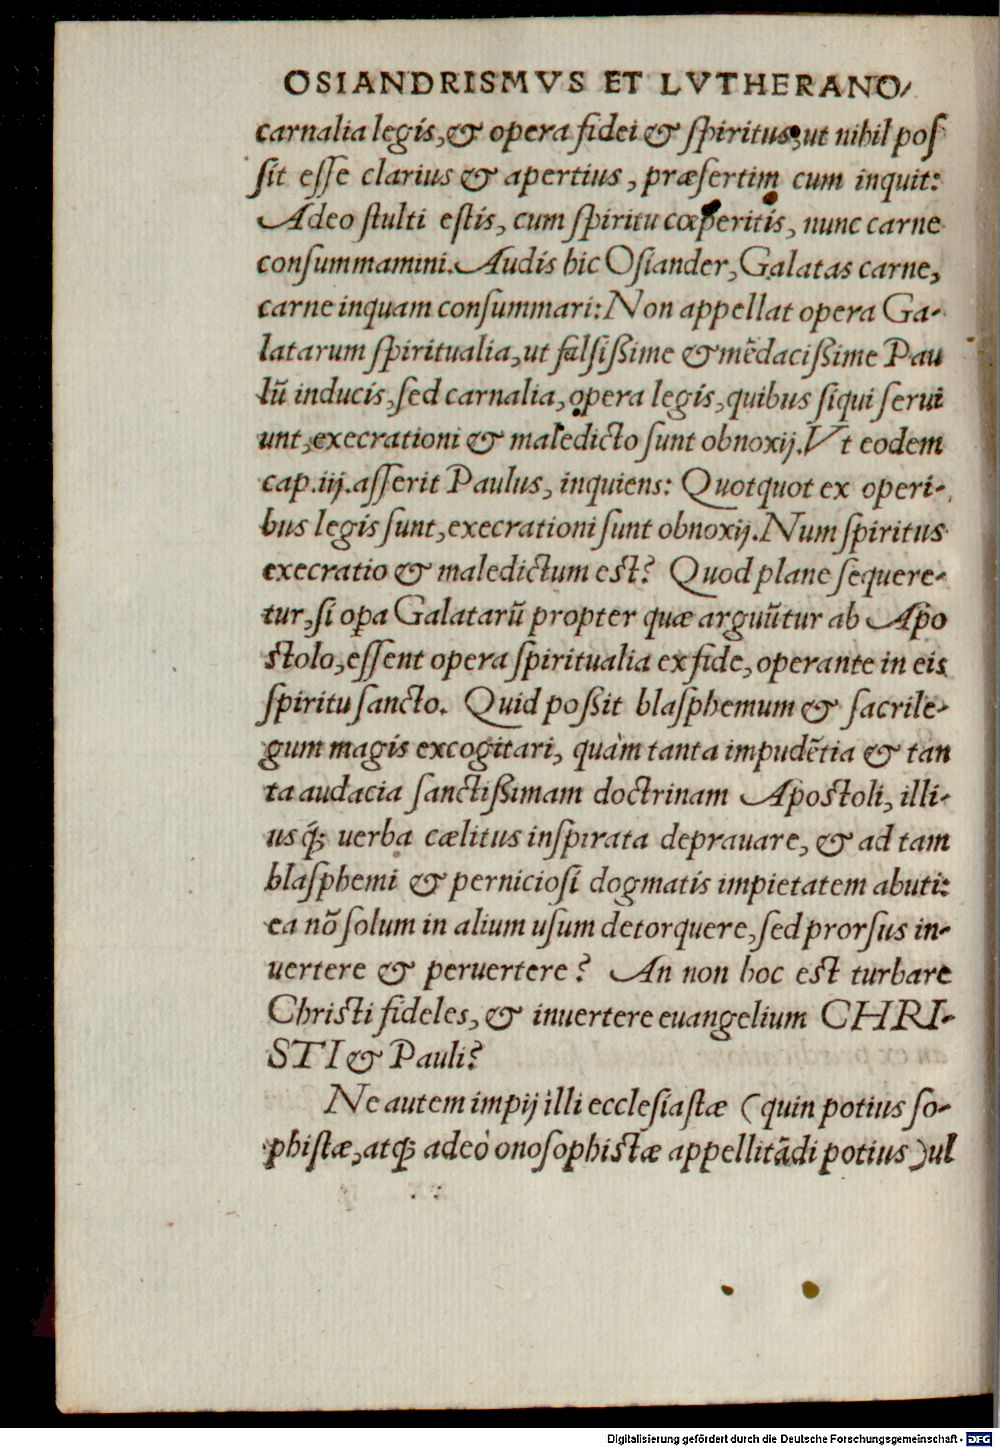 OSIANDRISMVS ET LVTHERANO/
carnalia legis, & opera fidei & ſpiritus, ut nihil poſ
ſit eſſe clarius & apertius, præſertim cum inquit:
Adeo ſtulti eſtis, cum ſpiritu cœperitis, nunc carne
conſummamini. Audis hic Oſiander, Galatas carne,
carne inquam conſummari: Non appellat opera Ga-
latarum ſpiritualia, ut falſißime & mēdacißime Pau
lū inducis, ſed carnalia, opera legis, quibus ſiqui ſerui
unt, execrationi & maledicto ſunt obnoxij. Vt eodem
cap. iij. aſſerit Paulus, inquiens: Quotquot ex operi-
bus legis ſunt, execrationi ſunt obnoxij. Num ſpiritus
execratio & maledictum est? Quod plane ſequere-
tur, ſi oꝑa Galatarū propter quæ arguūtur ab Apo
stolo, eſſent opera ſpiritualia ex fide, operante in eis
ſpiritu ſancto. Quid poßit blaſphemum & ſacrile-
gum magis excogitari, quàm tanta impudētia & tan
ta audacia ſanctißimam doctrinam Apostoli, illi-
usq́; uerba cælitus inſpirata deprauare, & ad tam
blaſphemi & pernicioſi dogmatis impietatem abuti:
ea nō ſolum in alium uſum detorquere, ſed prorſus in-
uertere & peruertere? An non hoc est turbare
Christi fideles, & inuertere euangelium CHRI-
STI & Pauli?
Ne autem impij illi eccleſiaſtæ (quin potius ſo-
phiſtæ, atq; adeò onoſophistæ appellitādi potius) ul
Digitalisierung gefördert durch die Deutsche Forschungsgemeinschaft - DFG